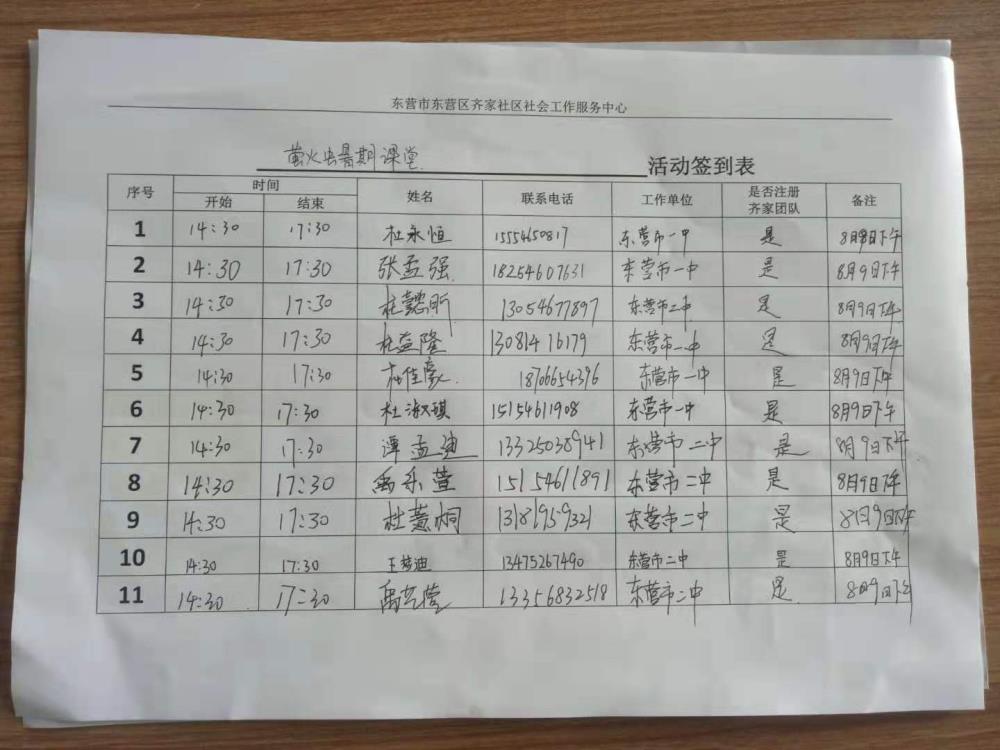 东营市东营区齐家社区社会工作服务中心
萤火虫暑期课堂 活动签到表
序号 时间 姓名 联系电话 工作单位 是否注册 备注
开始 结束 齐家团队
1 14:30 17:30 杜永恒 15554650817 东营市一中 是 8月9日下午
2 14:30 17:30 张孟强 18254607631 东营市一中 是 8月9日下午
3 14:30 17:30 杜懿昕 13054677897 东营市二中 是 8月9日下午
4 14:30 17:30 杜益隆 13081416179 东营市一中 是 8月9日下午
5 14:30 17:30 杜佳豪 18706654396 东营市一中 是 8月9日下午
6 14:30 17:30 杜淑琪 15154611908 东营市一中 是 8月9日下午
7 14:30 17:30 谭孟迪 13325038941 东营市二中 是 8月9日下午
8 14:30 17:30 禹乐萱 15154611891 东营市二中 是 8月9日下午
9 14:30 17:30 杜薏桐 13181959321 东营市二中 是 8月9日下午
10 14:30 17:30 王梦迪 13475267490 东营市二中 是 8月9日下午
11 14:30 17:30 禹 13356832518 东营市二中 是 8月9日下午